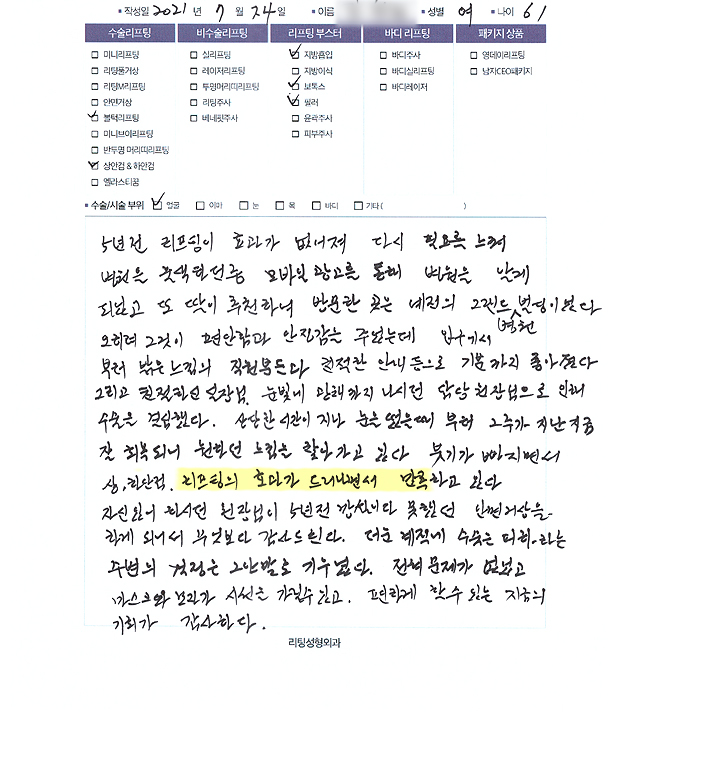 작성일 2021 년 7 월 24 일 이름 성별 여 나이 61
수술리프팅 비수술리프팅 리프팅 부스터 바디 리프팅 패키지 상품
미니리프팅 실리프팅 지방흡입 바디주사 영데이리프팅
리팅풀거상 레이저리프팅 지방이식 바디실리프팅 남자CEO패키지
리팅M리프팅 투명머리띠리프팅 보톡스 바디레이저
안면거상 리팅주사 필러
볼턱리프팅 베네핏주사 윤곽주사
미니브이리프팅 피부주사
반투명 머리띠리프팅
상안검 & 하안검
엘라스티꿈
수술/시술 부위 얼굴 이마 눈 목 바디 기타 ( )
5년전 리프팅이 효과가 없어져 다시 필요를 느껴
병원을 모바일 광고를 통해 병원을 알게
되었고 또 딸이 추천하여 방문한 곳은 예전의 그랜드 빌딩이었다
병원
오히려 그것이 편안함과 안정감을 주었는데 입구에서
부터 밝은 느낌의 직원분들과 친절한 안내 등으로 기분까지 좋아졌다
그리고 친절하신 실장님, 눈빛이 담당 원장님으로 인해
수술을 결심했다. 상당한 시간이 지나 눈을 떴을때 부터 2주가 지난 지금
잘 회복되니 원하던 느낌을 찾아가고 있다 붓기가 빠지면서
상, 하안검, 리프팅의 효과가 드러나면서 만족하고 있다
자신있게 하시던 원장님이 5년전 못했던 안면거상을
하게 되어서 무엇보다 감사드린다. 더운 계절에 수술은 피하라는
주변의 걱정은 그야말로 기우였다. 전혀 문제가 없었고
마스크와 모자가 시선을 가릴수 있고, 편하게 할수 있는 지금의
기회가 감사하다.
리팅성형외과